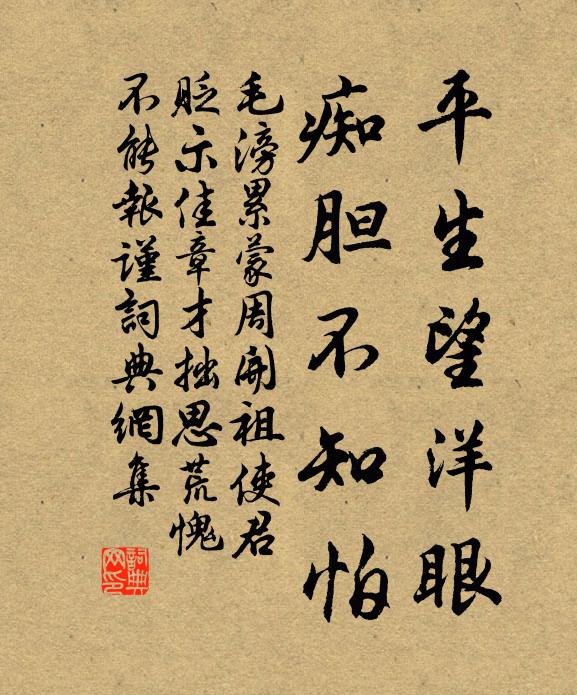 平生望洋眼
痴胆不知怕
毛滂累蒙周開祖使君
貶示佳章才拙思荒愧
不能報謹詞典網集
詞典网印